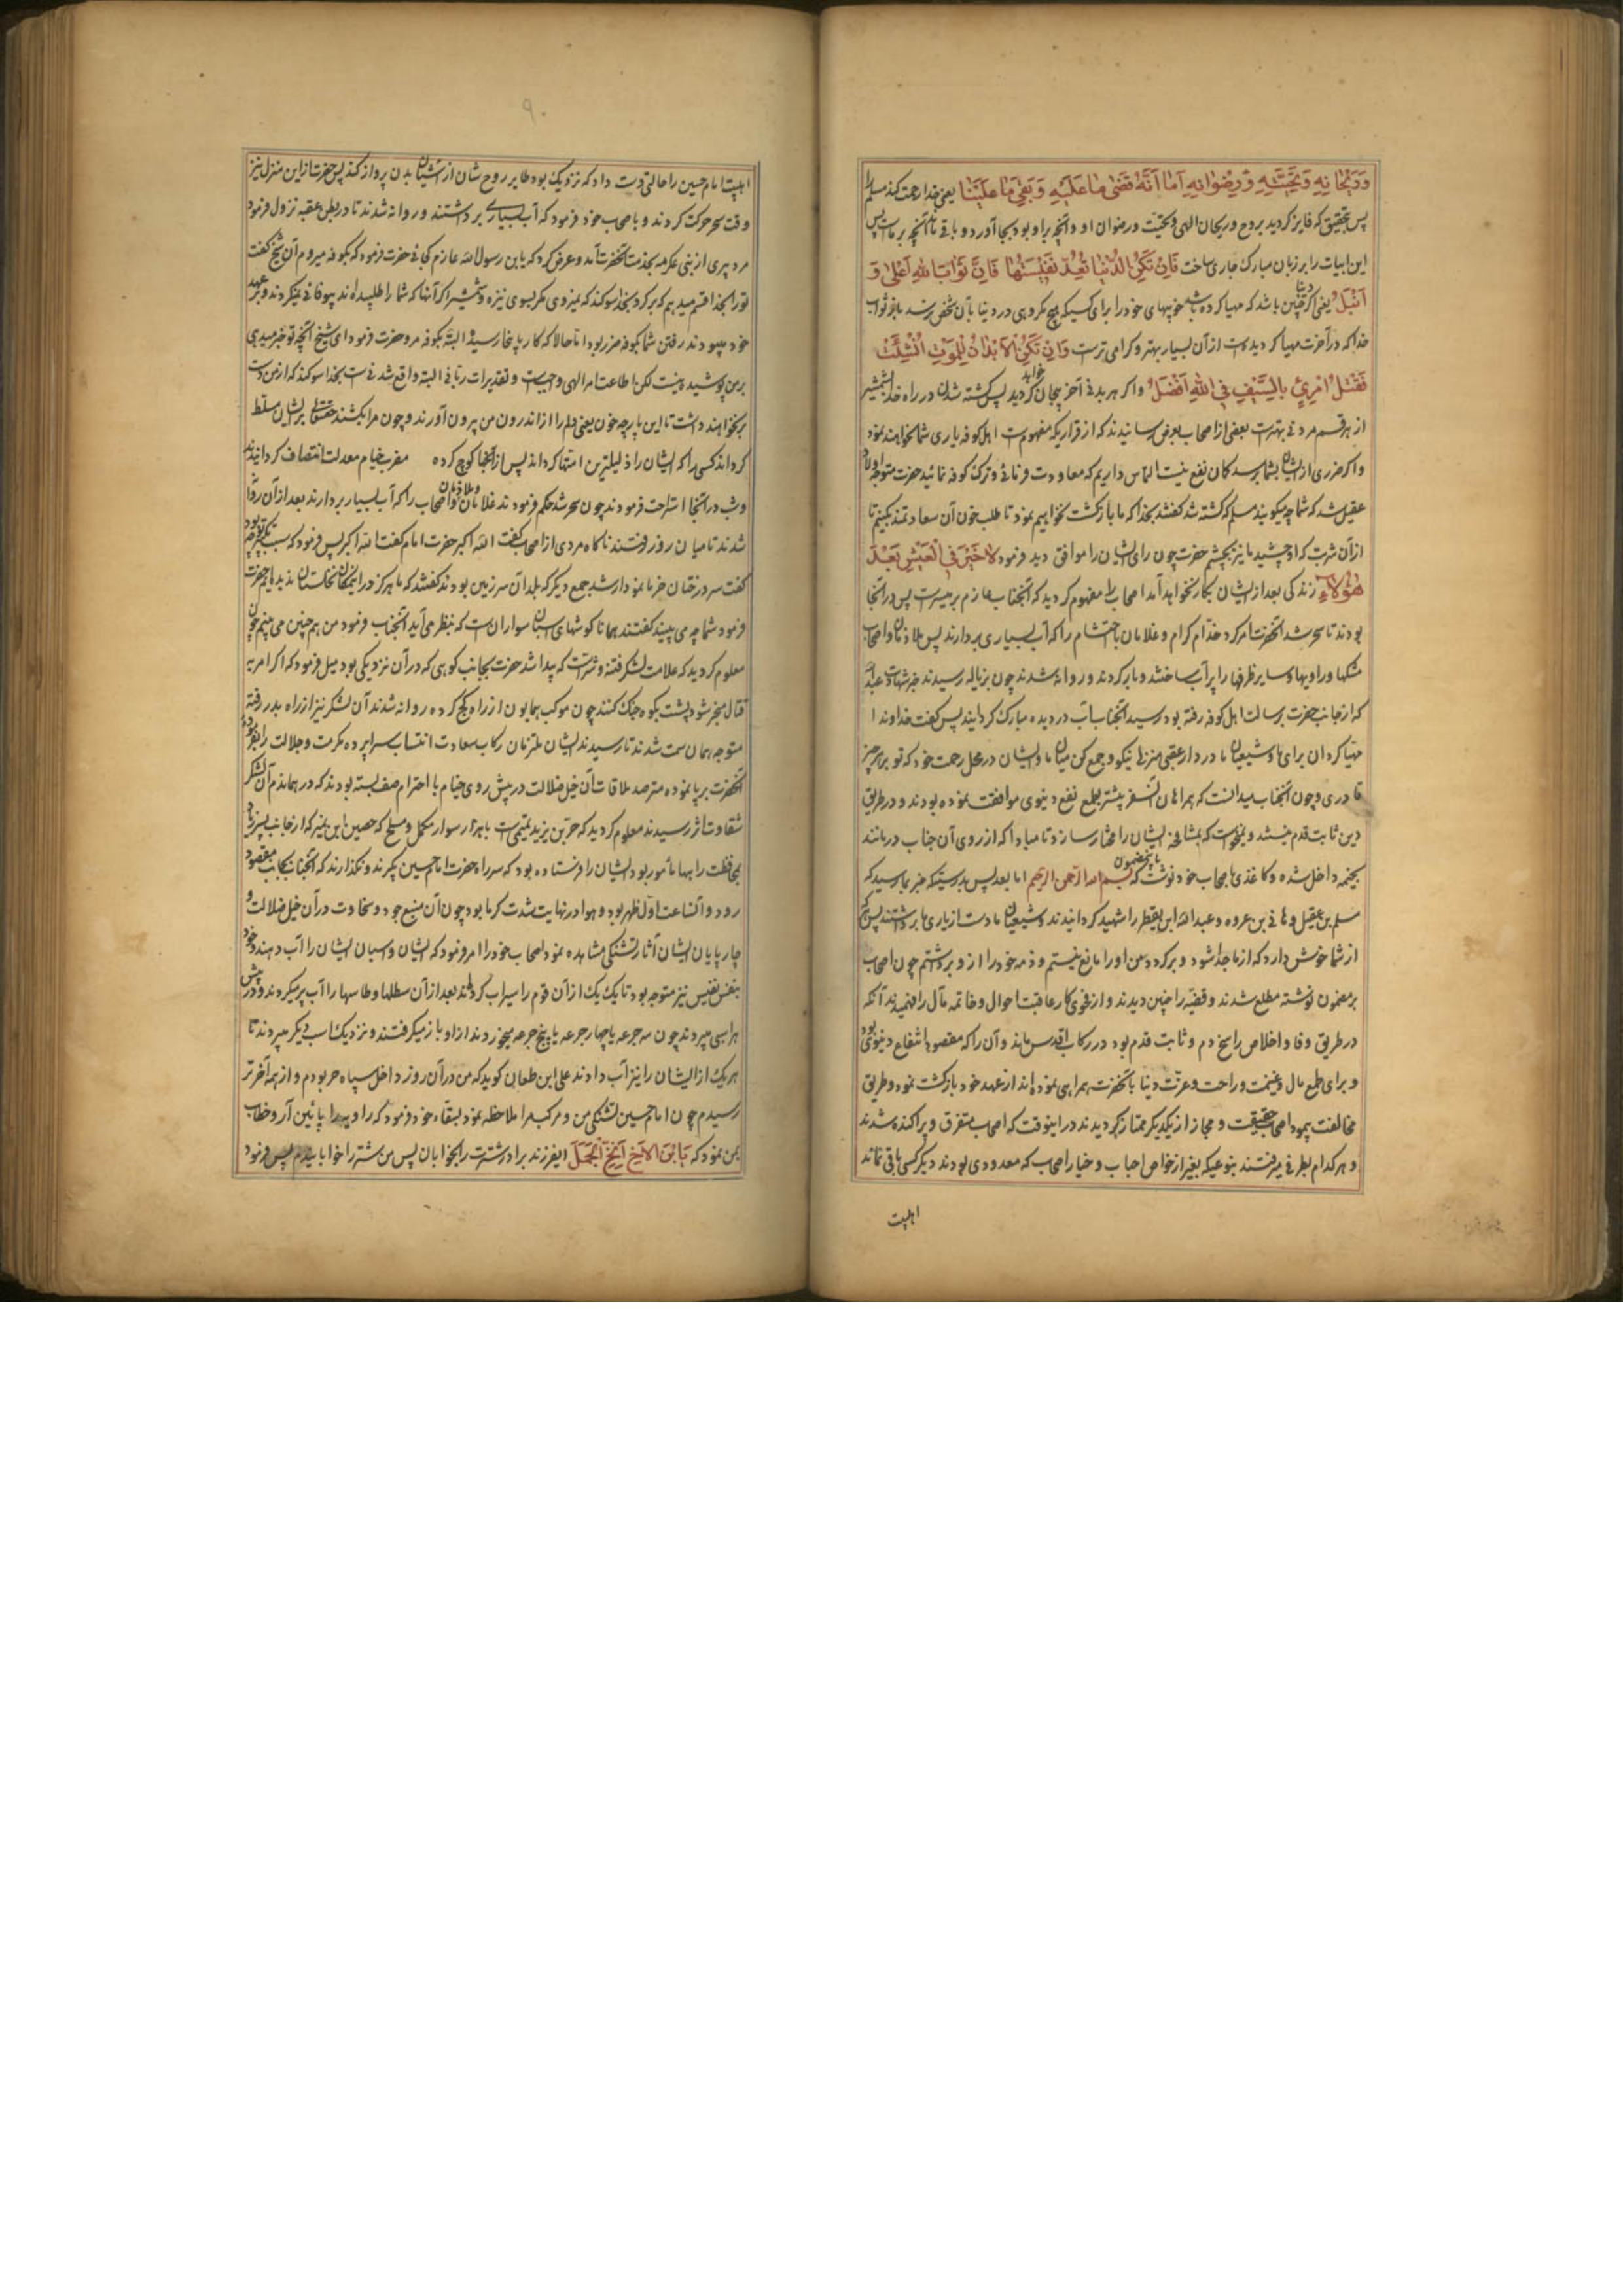 وَرَیْحَانِهِ وَتَحِیَّتِهِ وَرِضْوَانِهِ اَمَا اَنَّهُ قَضٰی مَا عَلَیْهِ وَبَقِیَ مَا عَلَیْنَا یعنی خدا رحمت کند مسلم را
پس بتحقیق که فایز کردید بروح و ریحان الهی و تحیت و رضوان او و آنچه بر او بود بجا آورد و باقی ماند آنچه بر ماست پس
این ابیات را بر زبان مبارک جاری ساخت فَاِنْ تَکُنِ الدُّنْیَا تُعَدُّ نَفِیْسَتُهَا فَاِنَّ ثَوَابَ اللهِ اَعْلٰی وَ
اَنْبَلُ یعنی اکر دنیا چنین باشد که مهیا کرده باشد خوبیهای خود را برای کسیکه هیچ مکروهی در دنیا بآن شخص نرسد باز ثواب
خدا که در آخرت مهیا کردیده است از آن بسیار بهتر و کرامی ترست وَاِنْ تَکُنِ الْاَبْدَانُ لِلْمَوْتِ اُنْشِئَتْ
فَقَتْلُ امْرِئٍ بِالسَّیْفِ فِی اللهِ اَفْضَلُ و اکر هر بدنی آخر بیجان خواهد کردید پس کشته شدن در راه خدا بشمشیر
از هر قسم مردنی بهترست بعضی از اصحاب بعرض رسانیدند که از قراریکه مفهومست اهل کوفه یاری شما نخواهند نمود
و اکر ضرری از ایشان بشما نرسد کان نفع نیست التماس داریم که معاودت فرمائی و ترک کوفه نمائید حضرت متوجه اولاد
عقیل شد که شما چه میکویید مسلم که کشته شد کفتند بخدا که ما بازکشت نخواهیم نمود تا طلب خون آن سعادتمند بکنیم تا
از آن شربت که او چشید ما نیز بچشیم حضرت چون رای ایشان را موافق دید فرمود لَاخَیْرَ فِی الْعَیْشِ بَعْدَ
هٰؤُلَاءِ زندکی بعد از ایشان بکار نخواهد آمد اصحاب را مفهوم کردید که آنجناب عازم بر مسیرست پس در آنجا
بودند تا سحر شد آنحضرت امر کرد خدّام کرام و غلامان با احتشام را که آب بسیاری بردارند پس ملازمان و اصحاب
مشکها و راویها و سایر ظرفها را پر آب ساختند و بار کردند و روانه شدند چون بزباله رسیدند خبر شهادت عبدالله
که از جانب حضرت برسالت اهل کوفه رفته بود رسید آنجناب آب در دیده مبارک کردانید پس کفت خداوندا
مهیّا کردان برای ما و شیعیان ما در دار عقبی منزلی نیکو و جمع کن میان ما و ایشان در محل رحمت خود که تو بر هر چیز
قادری و چون آنجناب میدانست که همراهان آن سفر بیشتر بطمع نفع دنیوی موافقت نموده بودند و در طریق
دین ثابت قدم نیستند و میخواست که بمشافهه ایشان را مختار سازد تا مبادا که از روی آن جناب درمانند
بخیمه داخل شده و کاغذی باصحاب خود نوشت که باین مضمون بسم الله الرّحمن الرّحیم اما بعد پس بدرستیکه خبر بما رسید که
مسلم بن عقیل و هانی بن عروه و عبدالله ابن یقطر را شهید کردانیدند و شیعیان ما دست از یاری ما برداشتند پس هر که
از شما خوش دارد که از ما جدا شود و برکردد من او را مانع نیستم و ذمه خود را از او برداشتم چون اصحاب
بر مضمون نوشته مطلع شدند و قضیّه را چنین دیدند و از فحوی کار عاقبت احوال و خاتمه مآل را فهمیدند آنکه
در طریق وفا و اخلاص راسخ دم و ثابت قدم بود در رکاب اقدس ماند و آن را که مقصود انتفاع دنیوی بود
و برای طمع مال و غنیمت و راحت و عزّت دنیا با آنحضرت همراهی نموده اند از عهد خود بازکشت نمود و طریق
مخالفت پیمود اصحاب حقیقت و مجاز از یکدیکر ممتاز کردیدند در اینوقت که اصحاب متفرق و پراکنده شدند
و هر کدام بطرفی میرفتند بنوعیکه بغیر از خواص احباب و خیار اصحاب که معدودی بودند دیکر کسی باقی نماند
اهلبیت
۹۰
اهلبیت امام حسین را حالتی دست داد که نزدیک بود طایر روح شان از آشیان بدن پرواز کند پس حضرت از این منزل نیز
وقت سحر حرکت کردند و باصحاب خود فرمود که آب بسیاری برداشتند و روانه شدند تا در بطن عقبه نزول فرمود
مرد پیری از بنی عکرمه بخدمت آنحضرت آمد و عرض کرد که یا بن رسول الله عازم کجائی حضرت فرمود که بکوفه میروم آن شیخ کفت
تو را بخدا قسم میدهم که برکرد بخدا سوکند که نمیروی مکر بسوی نیزه و شمشیر اکر آنها که شما را طلبیده اند بیوفائی نمیکردند و بعهد
خود میبودند رفتن شما بکوفه ضرر نبود اما حالا که کار باینجا رسیده البته بکوفه مرو حضرت فرمود ای شیخ آنچه تو خبر میدهی
بر من پوشیده نیست لکن اطاعت امر الهی واجبست و تقدیرات ربّانی البته واقع شدنی ست بخدا سوکند که از من دست
برنخواهند داشت تا این پارچه خون یعنی دلم را از اندرون من بیرون آورند و چون مرا بکشند حقتعالی بر ایشان مسلط
کرداند کسی را که ایشان را ذلیلترین امتها کرداند پس از آنجا کوچ کرده مضرب خیام معدلت انتصاف کردانیدند
و شب در آنجا استراحت فرمودند چون سحر شد حکم فرمودند غلامان و ملازمان و اصحاب را که آب بسیار بردارند بعد از آن روانه
شدند تا میان روز رفتند ناکاه مردی از اصحاب کفت الله اکبر حضرت امام کفت الله اکبر پس فرمود که سبب تکبیر چه بود
کفت سر درختان خرما نمودار شد جمع دیکر که بلد آن سرزمین بودند کفتند که ما هرکز در این مکان نخلستان ندیده ایم حضرت
فرمود شما چه می بینید کفتند همانا کوشهای اسبان سواران است که بنظر می آید آنجناب فرمود من هم چنین می بینم چون
معلوم کردید که علامت لشکر فتنه و شرّست که پیدا شد حضرت بجانب کوهی که در آن نزدیکی بود میل فرمود که اکر امر به
قتال منجر شود پشت بکوه جنک کنند چون موکب همایون از راه کج کرده روانه شدند آن لشکر نیز از راه بدر رفته
متوجه همان سمت شدند تا رسیدند ایشان ملتزمان رکاب سعادت انتساب سراپرده مکرمت و جلالت را بفرموده
آنحضرت برپا نموده مترصد ملاقات آن خیل ضلالت در پیش روی خیام با احترام صف بسته بودند که در همان دم آن لشکر
شقاوت اثر رسیدند معلوم کردید که حرّ بن یزید تمیمی است با هزار سوار مکمل و مسلح که حصین ابن نمیر که از جانب پسر زیاد
بمحافظت راهها مأمور بود ایشان را فرستاده بود که سر راه حضرت امام حسین بکیرند و نکذارند که آنجناب بجانب مقصود
رود و آنساعت اوّل ظهر بود و هوا در نهایت شدت کرما بود چون آن منبع جود و سخاوت در آن خیل ضلالت و
چارپایان ایشان آثار تشنکی مشاهده نمود اصحاب خود را امر فرمود که ایشان و اسبان ایشان را آب دهند و خود
بنفس نفیس نیز متوجه بود تا یک یک از آن قوم را سیراب کردند بعد از آن سطلها و طاسها را آب پر میکردند و در پیش
هر اسبی میبردند چون سه جرعه یا چهار جرعه یا پنج جرعه میخوردند از او باز میکرفتند و نزدیک اسب دیکر میبردند تا
هر یک از ایشان را نیز آب دادند علی ابن طعان کوید که من در آن روز داخل سپاه حر بودم و از همه آخر تر
رسیدم چون امام حسین تشنکی من و مرکب مرا ملاحظه نمود بسقاء خود فرمود که راویه را پائین آر و خطاب
بمن نمود که یَابْنَ الْاَخِ اَنِخِ الْجَمَلَ ایفرزند برادر شترت را بخوابان پس من شتر را خوابانیدم پس فرمود